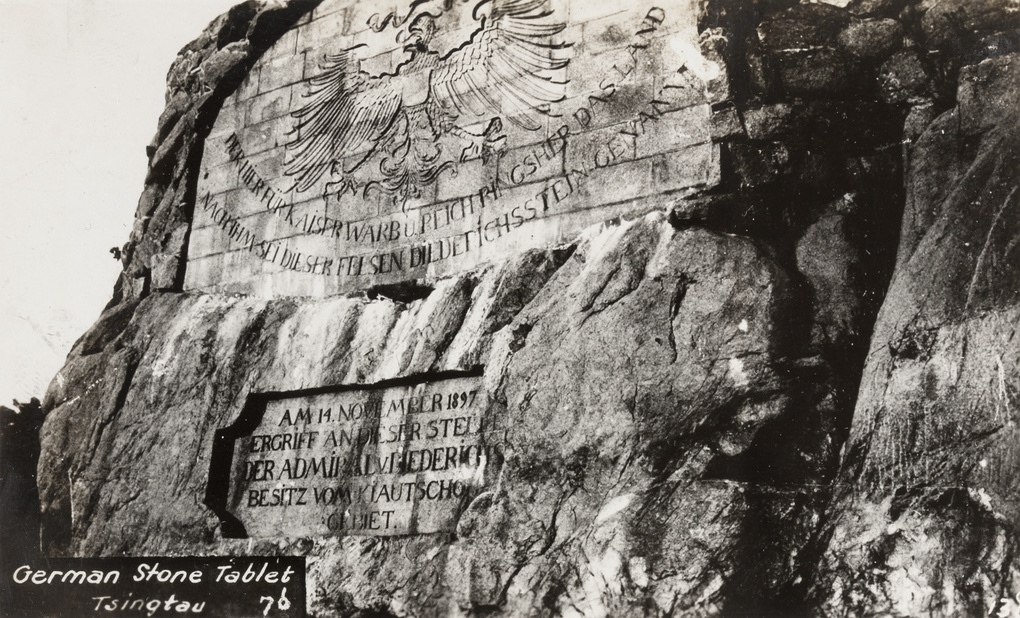 DER HIER FÜR KAISER WARB U. REICH RINGSHER DAS LAND
NACH IHM SEI DIESER FELSEN DIEDERICHSSTEIN GENANNT
AM 14. NOVEMBER 1897
ERGRIFF AN DIESER STELLE
DER ADMIRAL V. DIEDERICHS
BESITZ VOM KIAUTSCHOU
GEBIET.
German Stone Tablet
Tsingtau 76